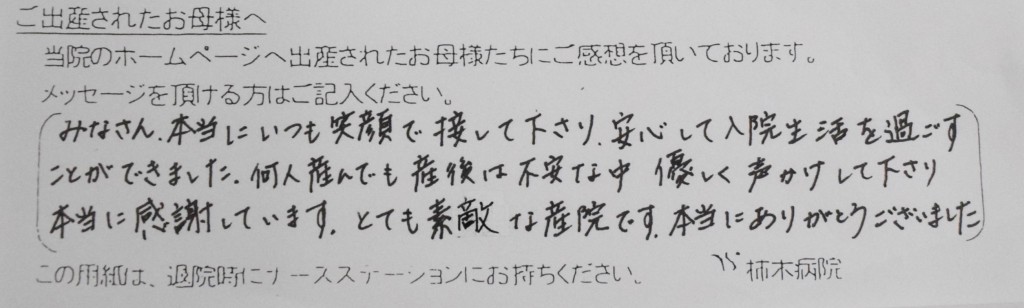 ご出産されたお母様へ
当院のホームページへ出産されたお母様たちにご感想を頂いております。
メッセージを頂ける方はご記入ください。
みなさん、本当にいつも笑顔で接して下さり、安心して入院生活を過ごす
ことができました。何人産んでも産後は不安な中 優しく声かけして下さり
本当に感謝しています。とても素敵な産院です。本当にありがとうございました
この用紙は、退院時にナースステーションにお持ちください。
柿木病院